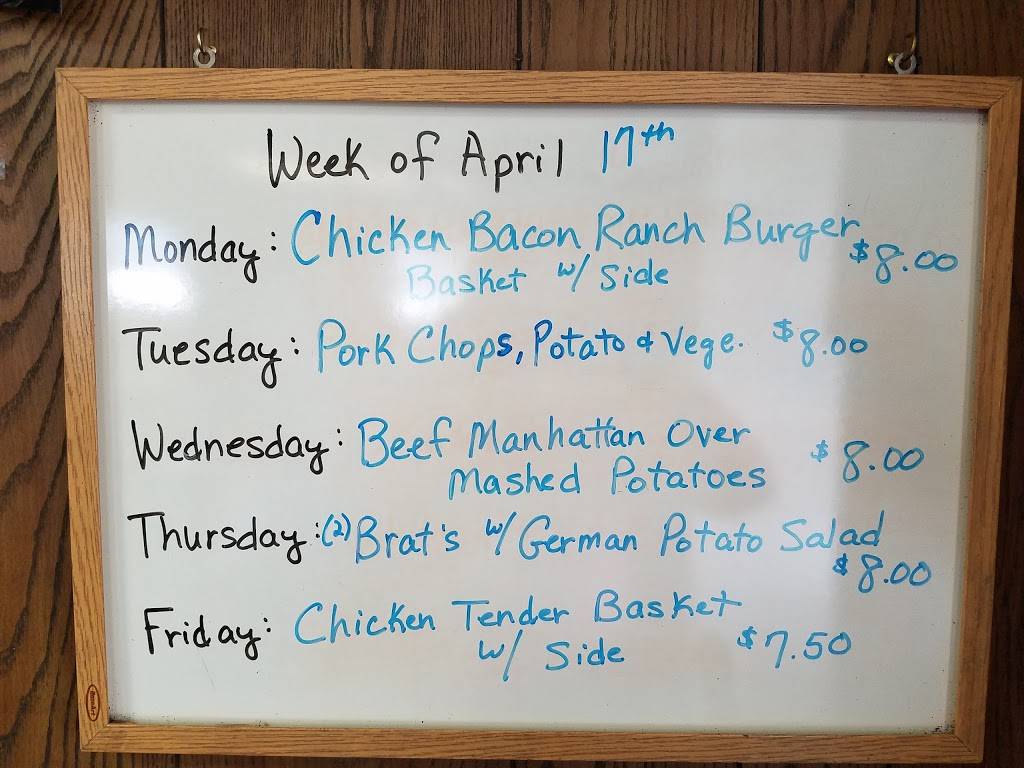 Week of April 17th
Monday: Chicken Bacon Ranch Burger $8.00
Basket w/ Side
Tuesday: Pork Chops, Potato & Vege. $8.00
Wednesday: Beef Manhattan Over
Mashed Potatoes $8.00
Thursday: (2) Brat's w/ German Potato Salad
$8.00
Friday: Chicken Tender Basket
w/ Side $7.50